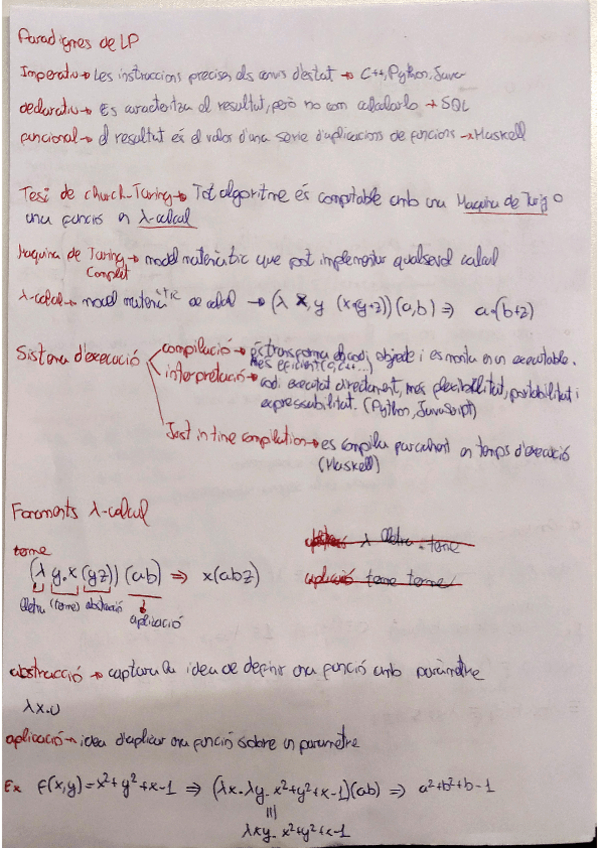 Paradigmes de LP
Imperatiu → Les instruccions precisen els canvis d'estat → C++, Python, Java
declaratiu → Es caracteritza el resultat, però no com calcularlo → SQL
funcional → el resultat és el valor d'una serie d'aplicacions de funcions → Haskell
Tesi de Church-Turing → Tot algoritme és computable amb una Maquina de Turig o
una funció en λ-calcul
Maquina de Turing → model matemàtic que pot implementar qualsevol calcul
Complet
λ-calcul → model matemàtic de calcul → (λ x,y (x*(y+z))(a,b) ⇒ a*(b+z)
Sistema d'execució
compilació → es transforma el codi objecte i es munta en un executable.
Més eficient (C, C++...)
interpretació → codi executat directament, més flexibilitat, portabilitat i
expressabilitat. (Python, JavaScript)
Just in time compilation → es compila parcialment en temps d'execució
(Haskell)
Fonaments λ-calcul
terme
(λ y.x (yz)) (ab) ⇒ x(abz)
lletra (terme) abstracció
aplicació
λ lletra . terme
aplicació terme terme
abstracció → captura la idea de definir una funció amb paràmetre
λx.u
aplicació → idea d'aplicar una funció sobre un parametre
Ex f(x,y)=x²+y²+x-1 ⇒ (λx.λy. x²+y²+x-1)(ab) ⇒ a²+b²+b-1
≡
λxy. x²+y²+x-1